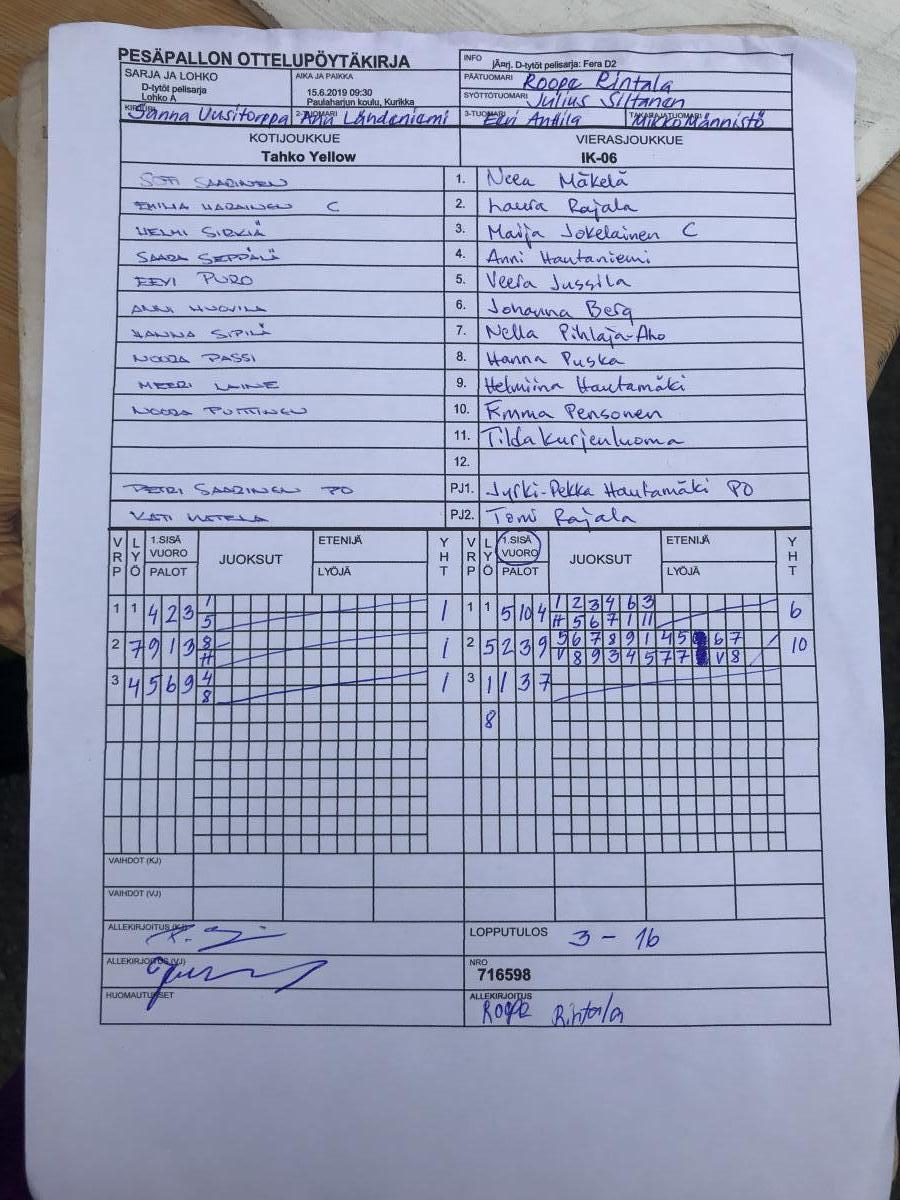 PESÄPALLON OTTELUPÖYTÄKIRJA
INFO jÄrrj. D-tytöt pelisarja: Fera D2
SARJA JA LOHKO
D-tytöt pelisarja
Lohko A
AIKA JA PAIKKA
15.6.2019 09:30
Paulaharjun koulu, Kurikka
PÄÄTUOMARI Roope Rintala
SYÖTTÖTUOMARI Julius Siltanen
Sanna Uusitorppa
2-TUOMARI
3-TUOMARI Eevi Anttila
TAKARAJATUOMARI Mikko Männistö
KOTIJOUKKUE
Tahko Yellow
VIERASJOUKKUE
IK-06
SAARINEN 1. Neea Mäkelä
C 2. Laura Rajala
HELMI SIRKIÄ 3. Maija Jokelainen C
SAARA SEPPÄLÄ 4. Anni Hautaniemi
EEVI PURO 5. Veera Jussila
ANNI 6. Johanna Berg
SIPILÄ 7. Nella Pihlaja-Aho
NOORA PASSI 8. Hanna Puska
MEERI LAINE 9. Helmiina Hautamäki
NOORA 10. Emma Pensonen
11. Tilda Kurjenluoma
12.
PETRI SAARINEN PO PJ1. Jyrki-Pekka Hautamäki PO
KATI PJ2. Tomi Rajala
VRP LYÖ 1.SISÄ VUORO PALOT JUOKSUT ETENIJÄ LYÖJÄ YHT VRP LYÖ 1.SISÄ VUORO PALOT JUOKSUT ETENIJÄ LYÖJÄ YHT
1 1 4 2 3 1 1 1 1 5 10 4 1 2 3 4 6 3 6
5 H 5 6 7 1 11
2 7 9 1 3 8 1 2 5 2 3 9 5 6 7 8 9 1 4 5 6 7 10
H V 8 9 3 4 5 7 7 V 8
3 4 5 6 9 4 1 3 1 1 3 7
8
8
VAIHDOT (KJ)
VAIHDOT (VJ)
ALLEKIRJOITUS (KJ)
LOPPUTULOS 3 - 16
ALLEKIRJOITUS (VJ)
NRO
716598
HUOMAUTUKSET
ALLEKIRJOITUS
Roope Rintala